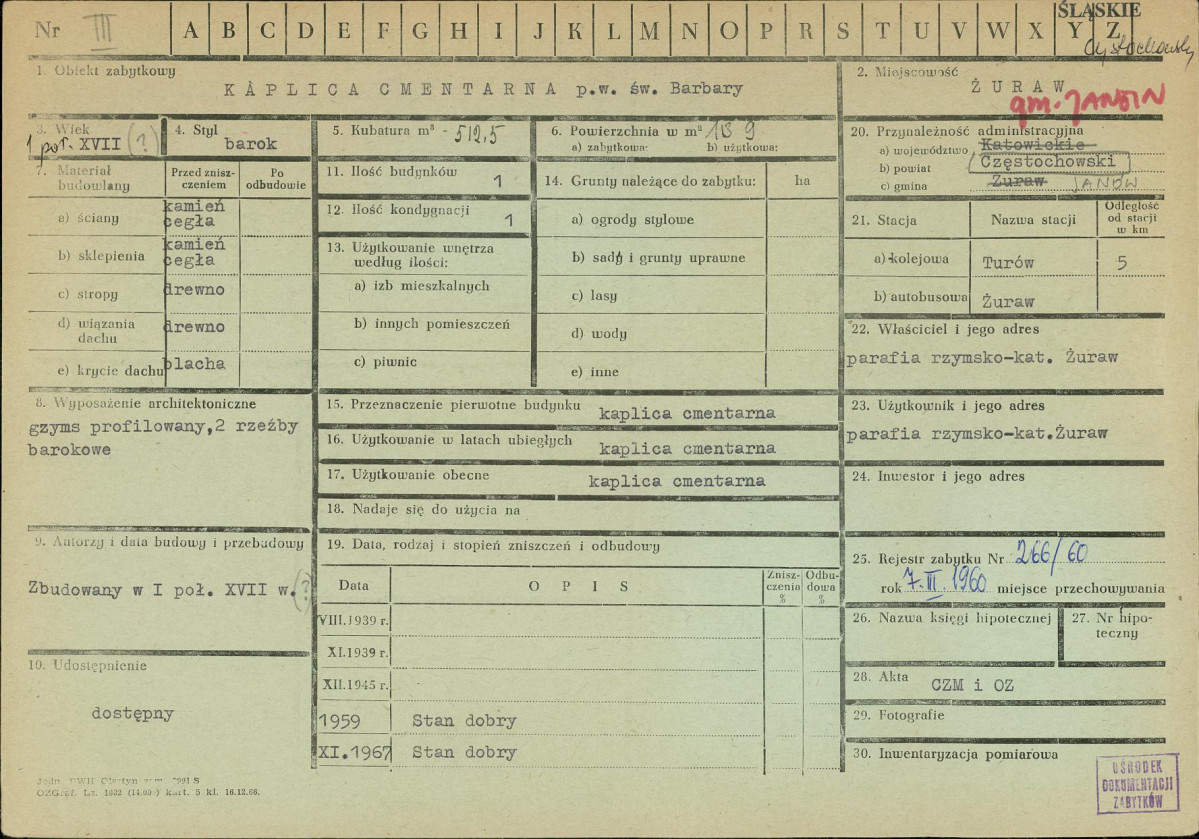 Nr III A B C D E F G H I J K L M N O P R S T U V W X Y Z
ŚLĄSKIE
1. Obiekt zabytkowy
KAPLICA CMENTARNA p.w. św. Barbary
2. Miejscowość
ŻURAW
gm. JANÓW
3. Wiek
1 poł. XVII (?)
4. Styl
barok
5. Kubatura m³ - 512,5
6. Powierzchnia w m²
a) zabytkowa: b) użytkowa:
20. Przynależność administracyjna
a) województwo Katowickie
b) powiat Częstochowski
c) gmina Żuraw JANÓW
7. Materiał budowlany
Przed zniszczeniem
Po odbudowie
a) ściany kamień cegła
b) sklepienia kamień cegła
c) stropy drewno
d) wiązania dachu drewno
e) krycie dachu blacha
11. Ilość budynków 1
12. Ilość kondygnacji 1
13. Użytkowanie wnętrza
według ilości:
a) izb mieszkalnych
b) innych pomieszczeń
c) piwnic
14. Grunty należące do zabytku: ha
a) ogrody stylowe
b) sady i grunty uprawne
c) lasy
d) wody
e) inne
21. Stacja Nazwa stacji Odległość od stacji w km
a) kolejowa Turów 5
b) autobusowa Żuraw
22. Właściciel i jego adres
parafia rzymsko-kat. Żuraw
8. Wyposażenie architektoniczne
gzyms profilowany,2 rzeźby
barokowe
15. Przeznaczenie pierwotne budynku kaplica cmentarna
16. Użytkowanie w latach ubiegłych kaplica cmentarna
17. Użytkowanie obecne kaplica cmentarna
18. Nadaje się do użycia na
23. Użytkownik i jego adres
parafia rzymsko-kat.Żuraw
24. Inwestor i jego adres
9. Autorzy i data budowy i przebudowy
Zbudowany w I poł. XVII w.(?)
10. Udostępnienie
dostępny
19. Data, rodzaj i stopień zniszczeń i odbudowy
Data O P I S Zniszczenia % Odbudowa %
VIII.1939 r.
XI.1939 r.
XII.1945 r.
1959 Stan dobry
XI.1967 Stan dobry
25. Rejestr zabytku Nr 266/60
rok 7.III.1960 miejsce przechowywania
26. Nazwa księgi hipotecznej
27. Nr hipoteczny
28. Akta CZM i OZ
29. Fotografie
30. Inwentaryzacja pomiarowa
OŚRODEK
DOKUMENTACJI
ZABYTKÓW
OZGraf. Lz. 1832 kart. 5 kl. 16.12.66.